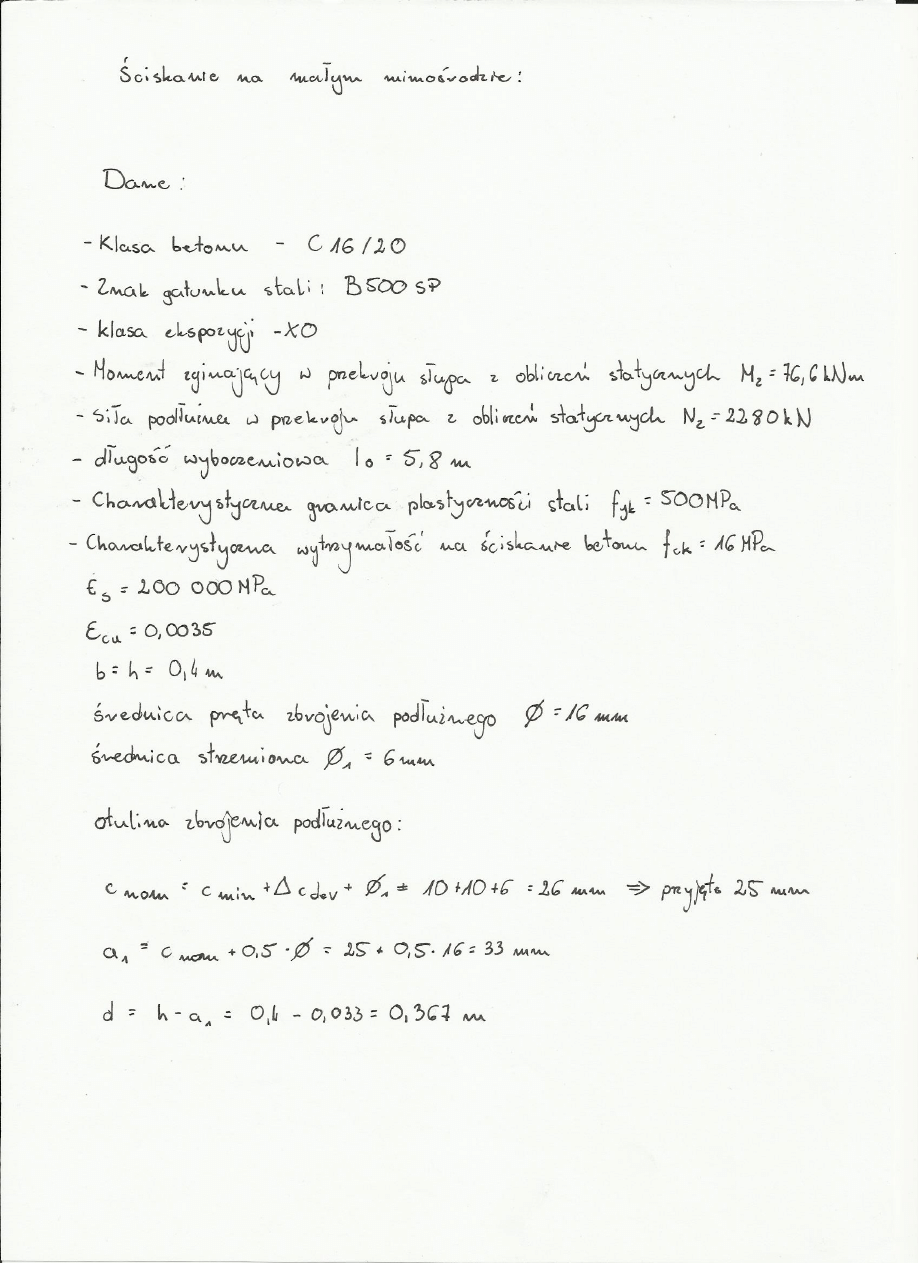 Ściskanie na małym mimośrodzie:
Dane:
- Klasa betonu - C 16/20
- Znak gatunku stali: B500 SP
- klasa ekspozycji - XO
- Moment zginający w przekroju słupa z obliczeń statycznych M₂ = 76,6 kNm
- Siła podłużna w przekroju słupa z obliczeń statycznych N₂ = 2280 kN
- długość wyboczeniowa l₀ = 5,8 m
- Charakterystyczna granica plastyczności stali fyk = 500 MPa
- Charakterystyczna wytrzymałość na ściskanie betonu fck = 16 MPa
Es = 200 000 MPa
Ɛcu = 0,0035
b = h = 0,4 m
średnica pręta zbrojenia podłużnego Ø = 16 mm
średnica strzemiona Ø₁ = 6 mm
otulina zbrojenia podłużnego:
c nom = c min + Δ c dev + Ø₁ = 10 + 10 + 6 = 26 mm ⇒ przyjęto 25 mm
a₁ = c nom + 0,5 · Ø = 25 + 0,5 · 16 = 33 mm
d = h - a₁ = 0,4 - 0,033 = 0,367 m